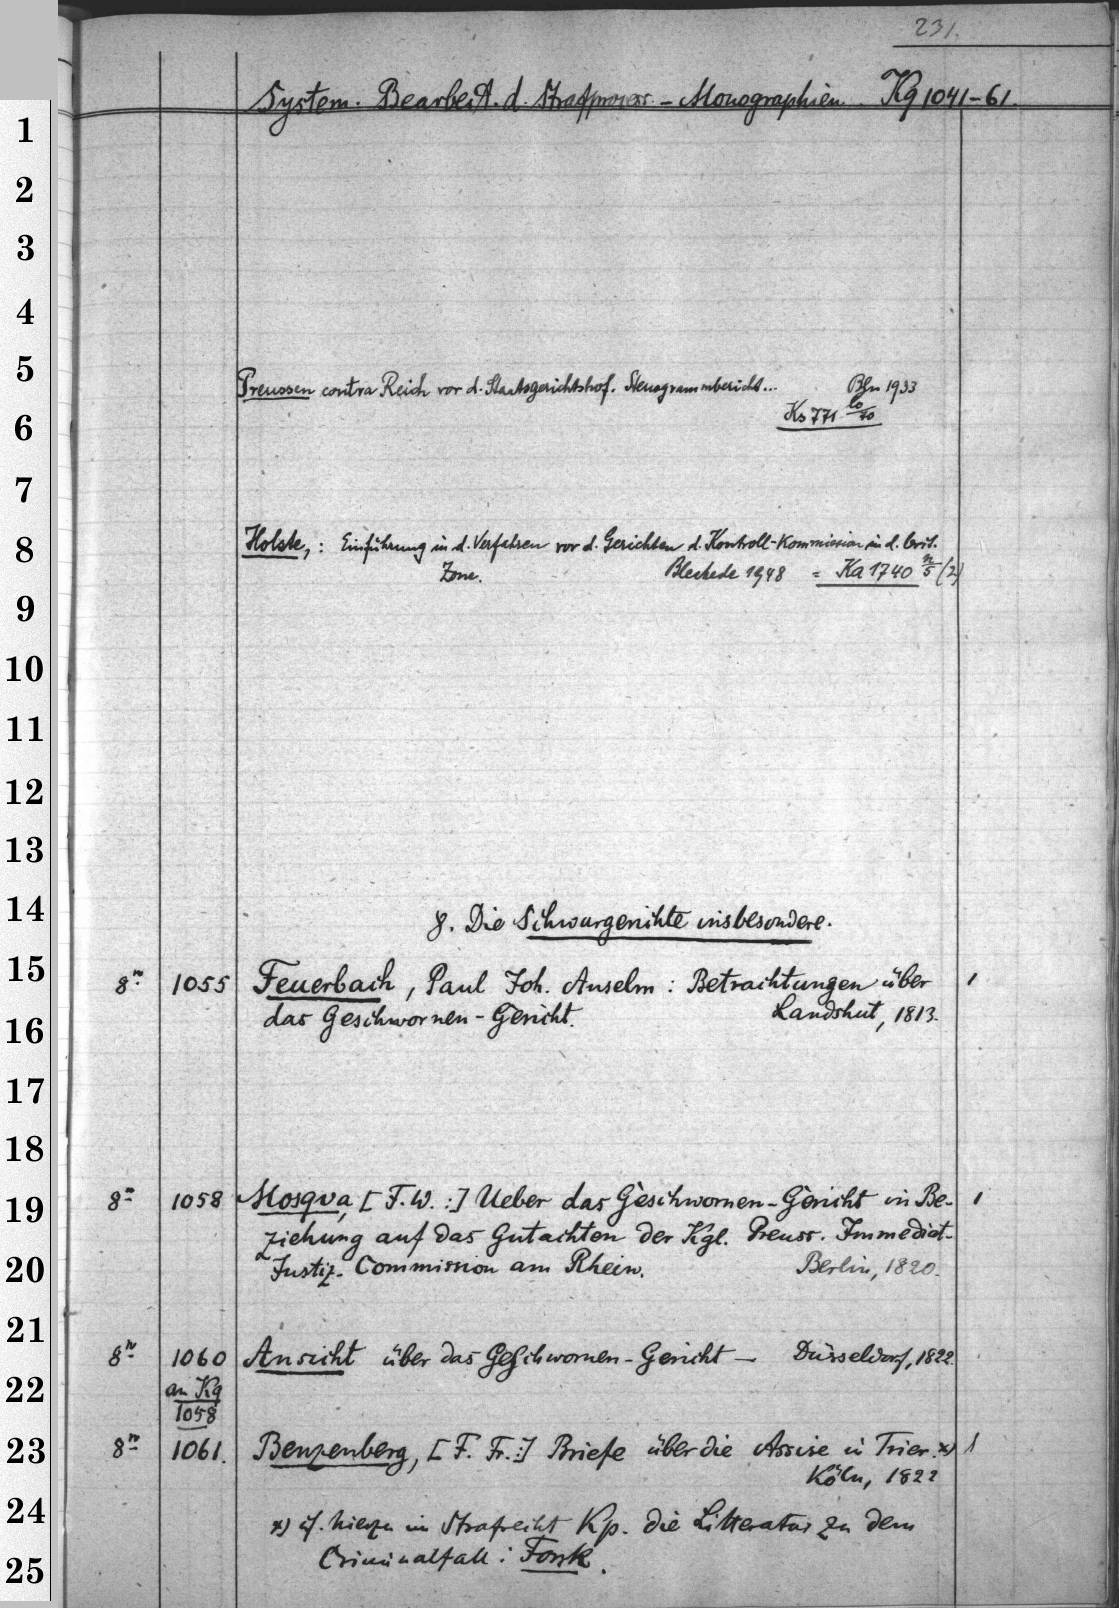 231.
System. Bearbeit. d. Strafprozess. - Monographien. Kg 1041-61.
1
2
3
4
5
Preussen contra Reich vor d. Staatsgerichtshof. Stenogrammbericht... Bln 1933
6
Ks 771 10/70
7
8
Holste,: Einführung in d. Verfahren vor d. Gerichten d. Kontroll-Kommission in d. brit.
Zone. Bleckede 1948 = Ka 1740 n/5 (2)
9
10
11
12
13
14
8. Die Schwurgerichte insbesondere.
15
8º 1055 Feuerbach, Paul Joh. Anselm: Betrachtungen über 1
16
das Geschwornen-Gericht. Landshut, 1813.
17
18
19
8º 1058 Mosqva, [F.W.:] Ueber das Geschwornen-Gericht in Be- 1
ziehung auf das Gutachten der Kgl. Preuss. Immediat-
20
Justiz-Commission am Rhein. Berlin, 1820.
21
8º 1060 Ansicht über das Geschwornen-Gericht — Düsseldorf, 1822.
22
an Kg
1058
23
8º 1061. Benzenberg, [F. Fr.:] Briefe über die Assise in Trier.x) 1
Köln, 1822
24
x) cf. hierzu im Strafrecht Kp. die Litteratur zu dem
Criminalfall: Fonk.
25